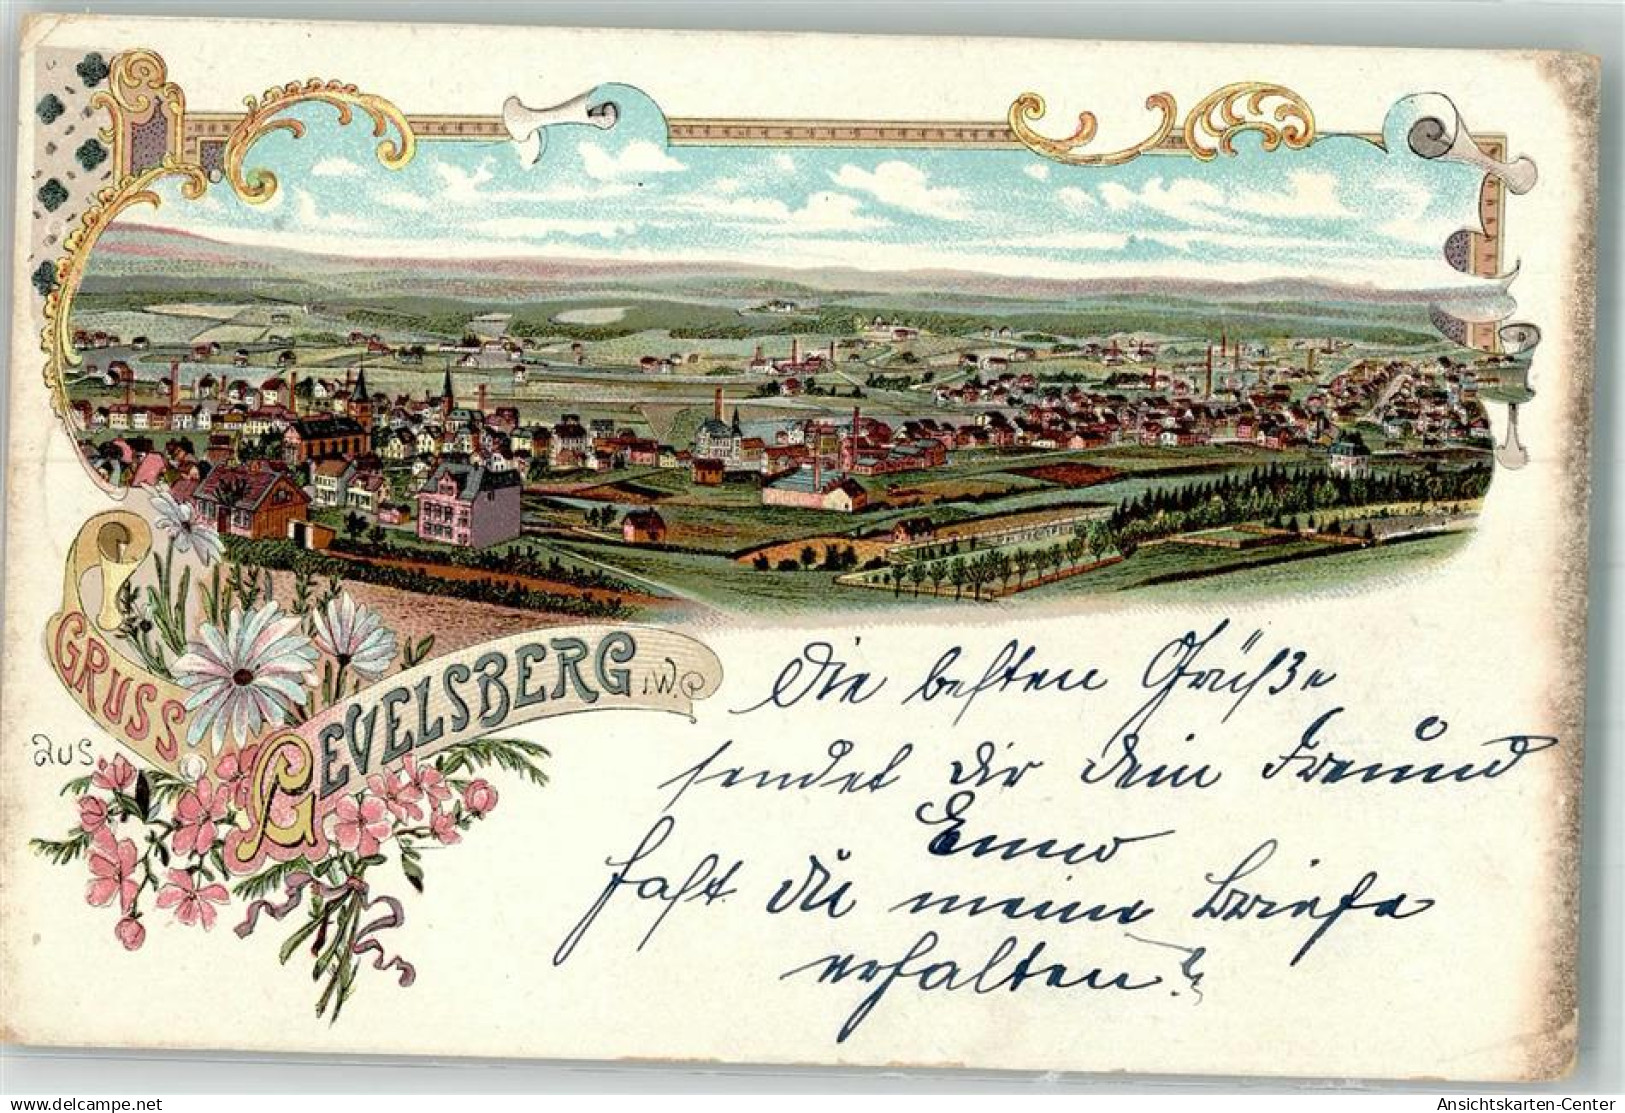 GRUSS
aus
GEVELSBERG i.W.
Die besten Grüße
sendet dir dein Freund
Enno
hast du meine Briefe
erhalten?
Ansichtskarten-Center
delcampe.net